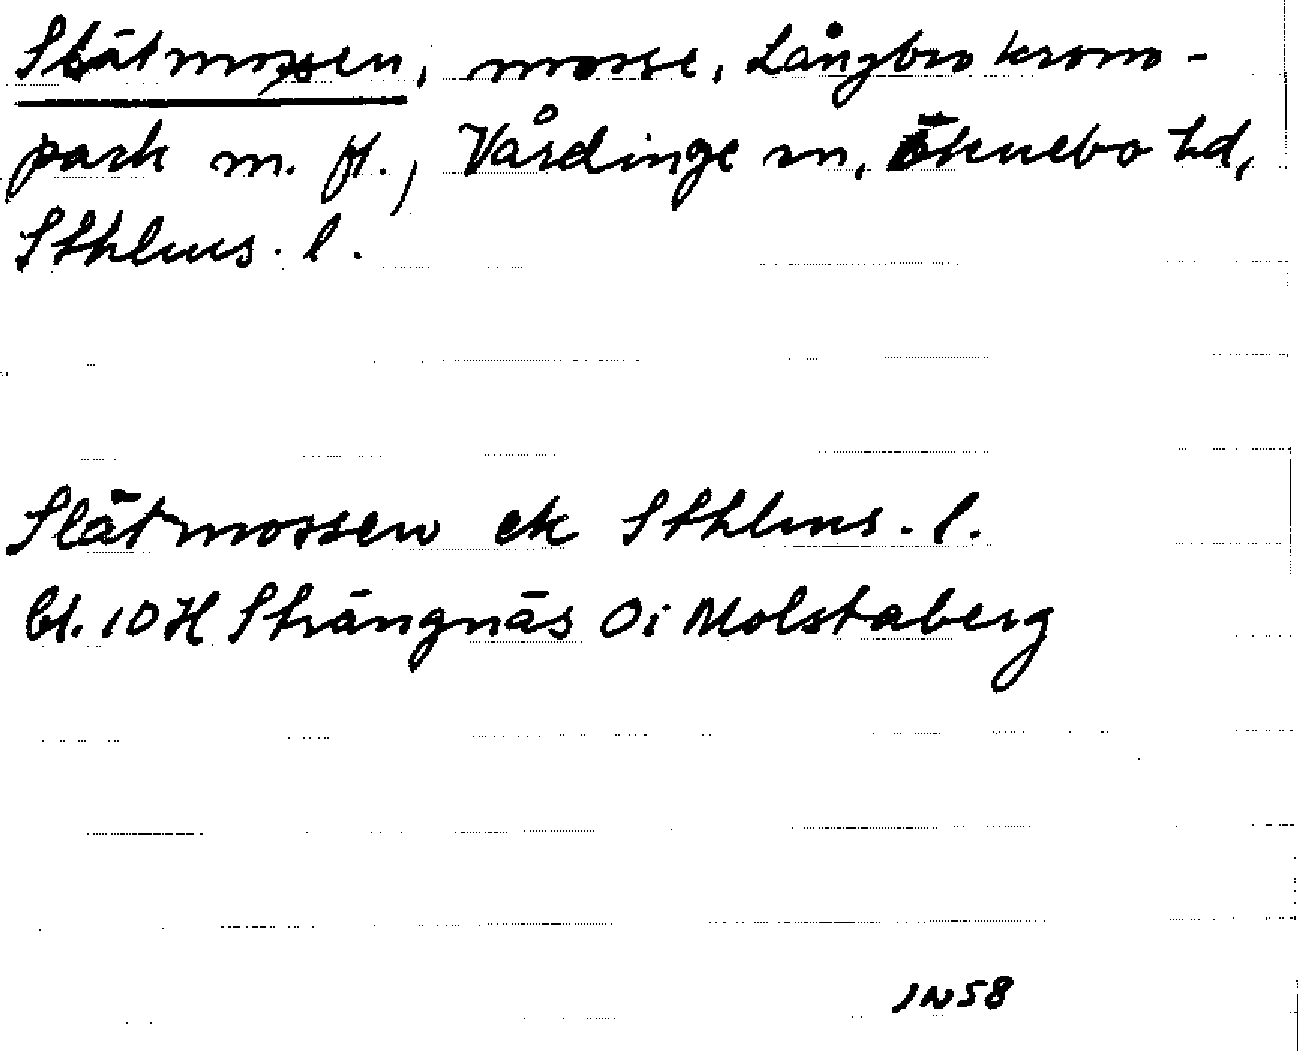 Slätmossen, mosse, Långbro krono-
park m. fl., Vårdinge sn, Öknebo hd,
Sthlms. l.
Slätmossen ek Sthlms. l.
bl. 10 H Strängnäs 0i Molstaberg
JN58